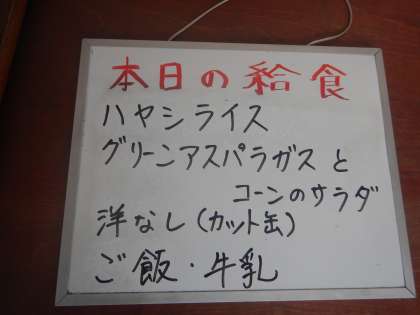 本日の給食
ハヤシライス
グリーンアスパラガスと
コーンのサラダ
洋なし(カット缶)
ご飯・牛乳